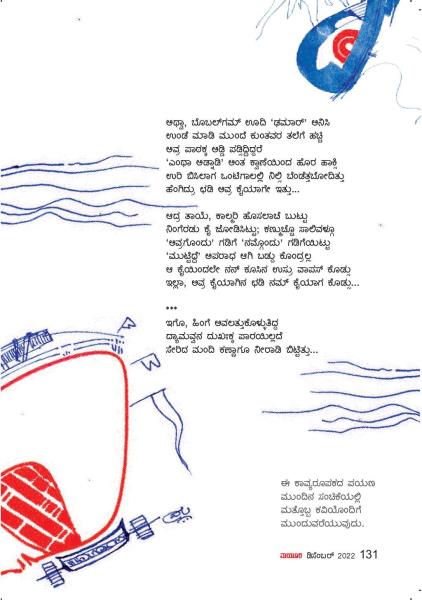 ಅಥ್ವಾ, ಬೊಬಲ್‌ಗಮ್ ಊದಿ 'ಢಮಾರ್' ಅನಿಸಿ
ಉಂಡೆ ಮಾಡಿ ಮುಂದೆ ಕುಂತವರ ತಲೆಗೆ ಹಚ್ಚಿ
ಅವ್ರ ಪಾಠಕ್ಕ ಅಡ್ಡಿ ಪಡ್ಸಿದ್ದಿದ್ದರೆ
'ಎಂಥಾ ಅಡ್ನಾಡಿ' ಅಂತ ಕ್ಲಾಸಿಯಿಂದ ಹೊರ ಹಾಕ್ಸಿ
ಉರಿ ಬಿಸಿಲಾಗ ಒಂಟಿಗಾಲಲ್ಲಿ ನಿಲ್ಸಿ ಬೆಂಡೆತ್ತಬೋದಿತ್ತು
ಹೆಂಗಿದ್ರು ಛಡಿ ಅವ್ರ ಕೈಯಾಗೇ ಇತ್ತು...
ಆದ್ರ ತಾಯಿ, ಕಾಲ್ಮರಿ ಹೊಸಲಾಚೆ ಬುಟ್ಟು
ನಿಂಗೆರಡು ಕೈ ಜೋಡಿಸಿಟ್ಟು; ಕಣ್ಮುಚ್ಚೊ ಸಾಲಿವಳ್ಗೂ
'ಅವ್ರಗೊಂದು' ಗಡಿಗೆ 'ನಮ್ಗೊಂದು' ಗಡಿಗೆಯಿಟ್ಟು
'ಮುಟ್ಟಿದ್ದೆ' ಅಪರಾಧ ಆಗಿ ಬಡ್ದು ಕೊಂದ್ರಲ್ಲ
ಆ ಕೈಯಿಂದಲೇ ನನ್ ಕೂಸಿನ ಉಸ್ರು ವಾಪಸ್ ಕೊಡ್ಸು
ಇಲ್ಲಾ, ಅವ್ರ ಕೈಯಾಗಿನ ಛಡಿ ನಮ್ ಕೈಯಾಗ ಕೊಡ್ಸು...
***
ಇಗೊ, ಹಿಂಗೆ ಅವಲತ್ತುಕೊಳ್ಳುತಿದ್ದ
ದ್ಯಾಮವ್ವನ ದುಃಖಕ್ಕ ಪಾರಯಿಲ್ಲದೆ
ಸೇರಿದ ಮಂದಿ ಕಣ್ಣಾಗೂ ನೀರಾಡಿ ಬಿಟ್ಟಿತ್ತು...
ಈ ಕಾವ್ಯರೂಪಕದ ಪಯಣ
ಮುಂದಿನ ಸಂಚಿಕೆಯಲ್ಲಿ
ಮತ್ತೊಬ್ಬ ಕವಿಯೊಂದಿಗೆ
ಮುಂದುವರೆಯುವುದು.
ಮಯೂರ ಡಿಸೆಂಬರ್ 2022 131